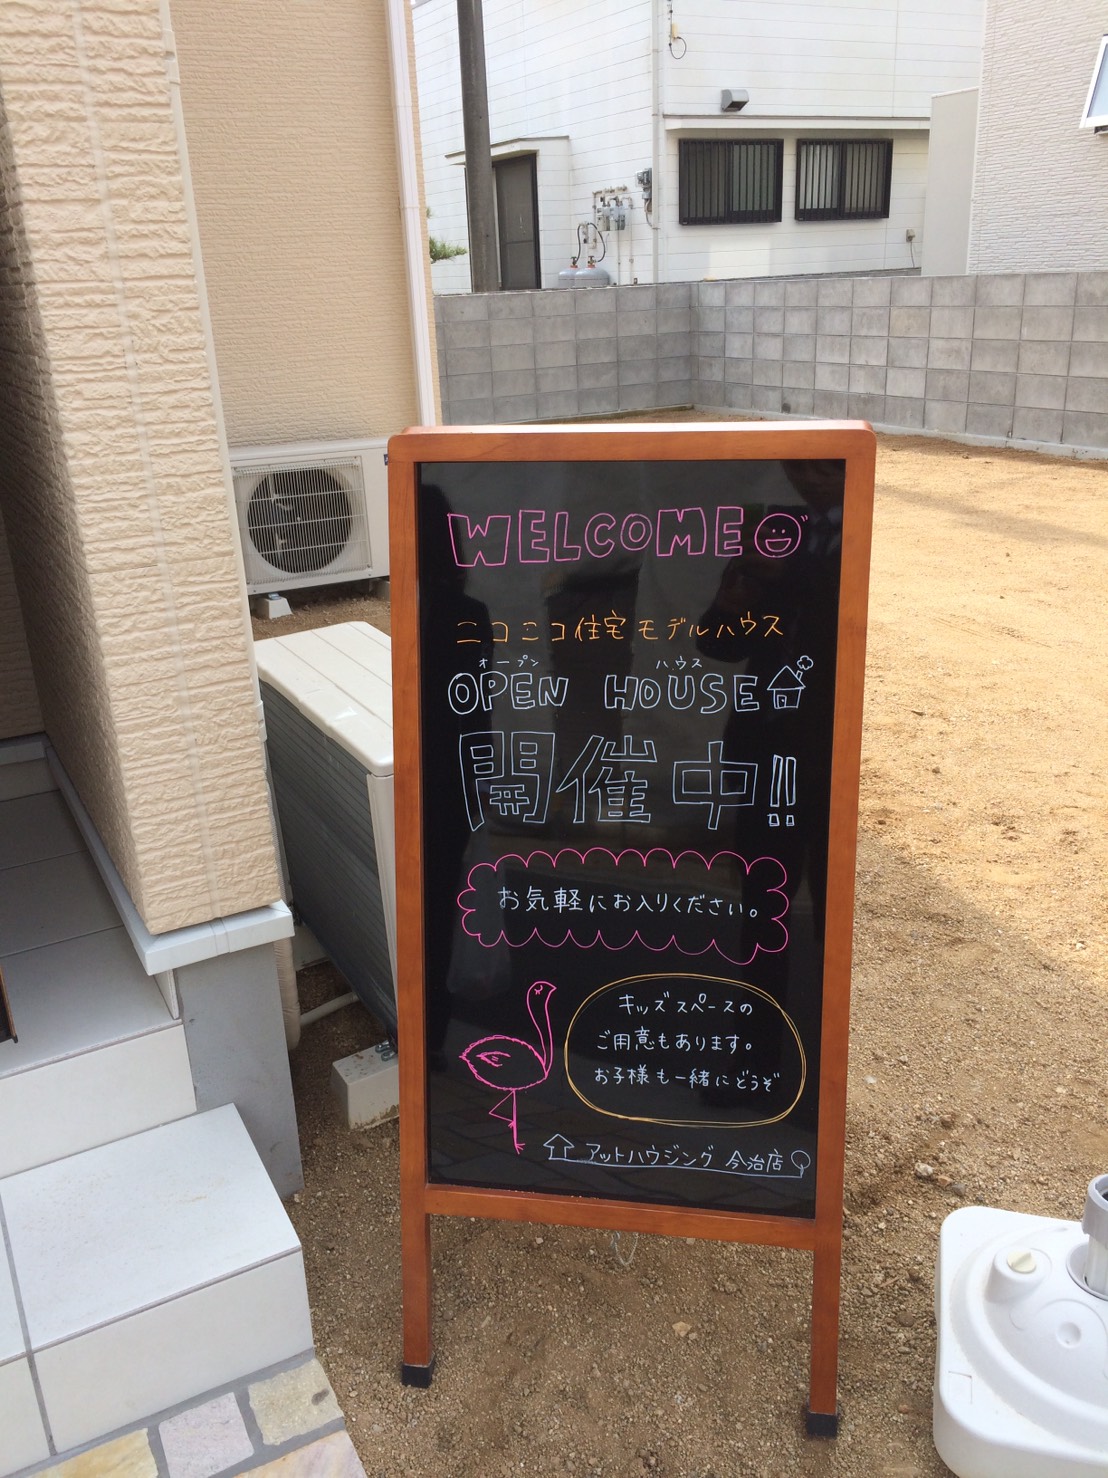 WELCOME
ニコニコ住宅モデルハウス
オープン ハウス
OPEN HOUSE
開催中!!
お気軽にお入りください。
キッズスペースの
ご用意もあります。
お子様も一緒にどうぞ
アットハウジング 今治店